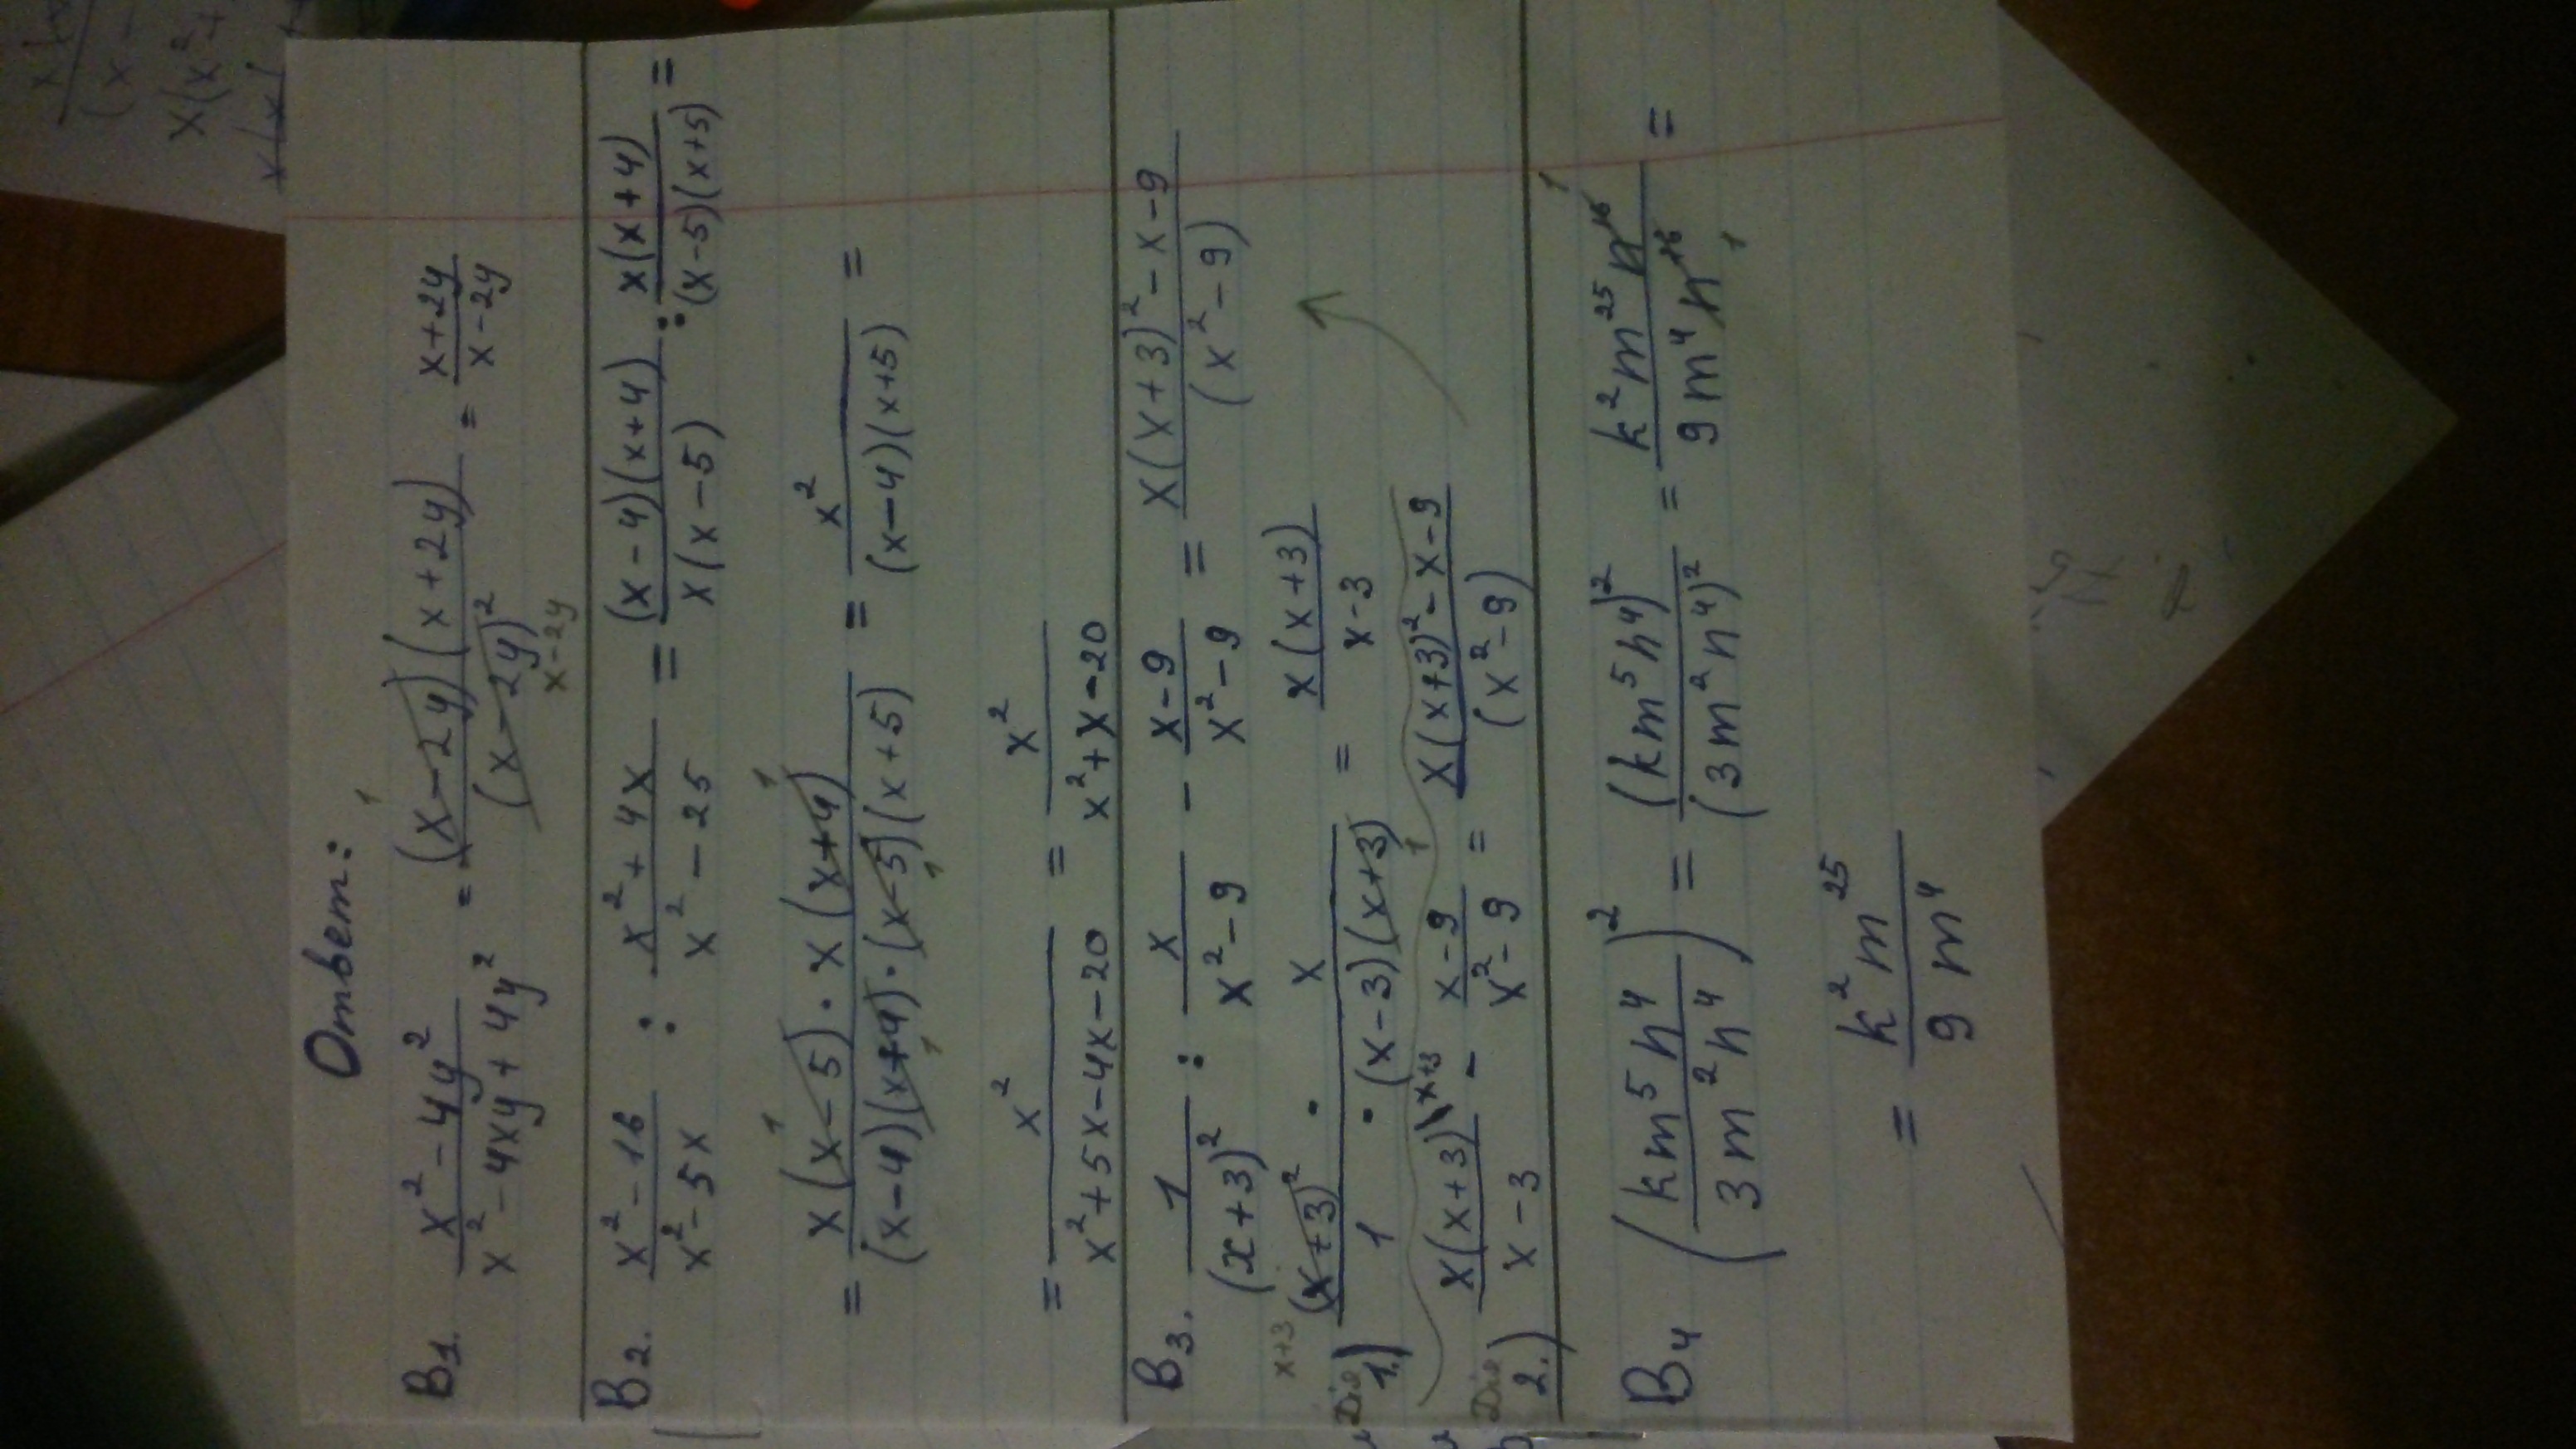 Ответ:
B1. (x² - 4y²)/(x² - 4xy + 4y²) = ((x - 2y)(x + 2y))/(x - 2y)² = (x + 2y)/(x - 2y)
1
x - 2y
B2. (x² - 16)/(x² - 5x) : (x² + 4x)/(x² - 25) = ((x - 4)(x + 4))/(x(x - 5)) : (x(x + 4))/((x - 5)(x + 5)) =
= (x(x - 5) · x(x + 4))/((x - 4)(x + 4) · (x - 5)(x + 5)) = x²/((x - 4)(x + 5)) =
1 1 1 1
= x²/(x² + 5x - 4x - 20) = x²/(x² + x - 20)
B3. 1/(x + 3)² : x/(x² - 9) - (x - 9)/(x² - 9) = (x(x + 3)² - x - 9)/(x² - 9)
x+3
1.) (x + 3)²/1 · x/((x - 3)(x + 3)) = (x(x + 3))/(x - 3)
1
2.) (x(x + 3)\x+3)/(x - 3) - (x - 9)/(x² - 9) = (x(x + 3)² - x - 9)/(x² - 9)
B4 ((km⁵n⁴)/(3m²n⁴))² = (km⁵n⁴)²/(3m²n⁴)² = (k²m²⁵n¹⁶)/(9m⁴n¹⁶) =
1 1
= (k²m²⁵)/(9m⁴)